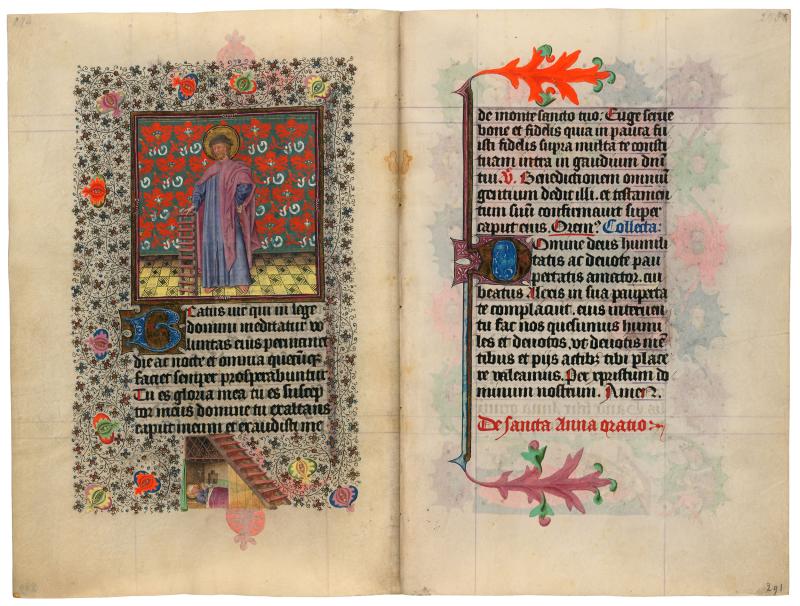 Beatus vir qui in lege
domini meditatur vo
luntas eius permanet
die ac nocte et omnia quecūqȝ
faciet semper prosperabuntur
Tu es gloria mea tu es suscep
tor meus domine tu exaltans
caput meum et exaudisti me
de monte sancto tuo: Euge serue
bone et fidelis quia in pauca fu
isti fidelis supra multa te consti
tuam intra in gaudium dn̄i
tui. V. Benedictionem omniū
gentium dedit illi. et testamen
tum suū confirmauit super
caput eius. Orem9 Collecta:
Domine deus humili
tatis ac deuote pau
pertatis amator. cui
beatus Alexis in sua pauperta
te complacuit. eius interuen
tu fac nos quesumus humi
les et deuotos. vt deuotis mē
tibus et pijs actibȝ tibi place
re valeamus. Per xpristum do
minum nostrum. Amen.
De sancta Anna oratio:
291